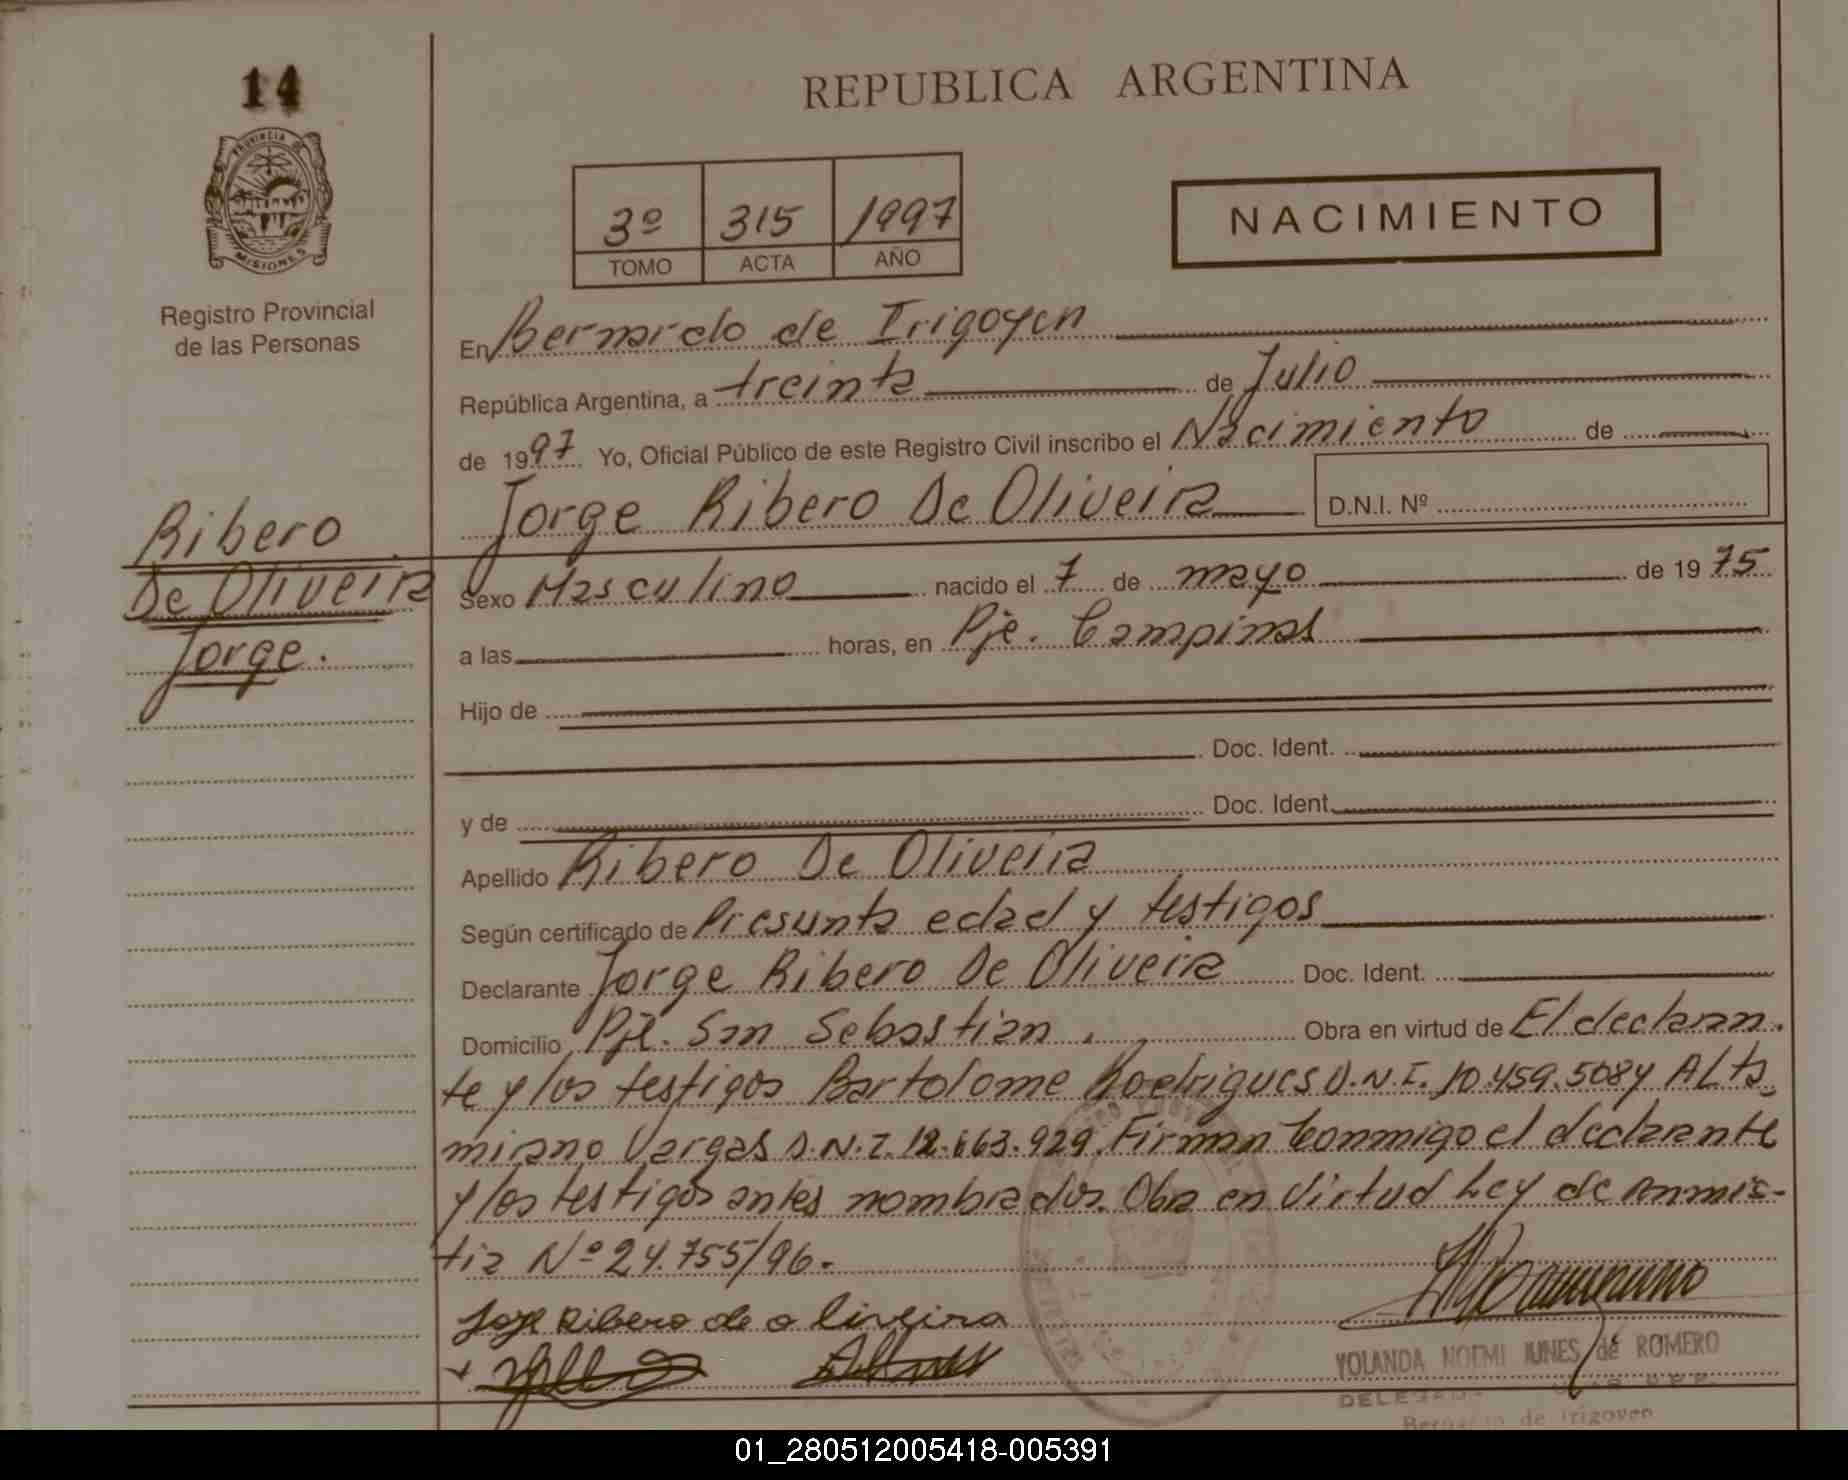 14
REPUBLICA ARGENTINA
PROVINCIA DE
MISIONES
Registro Provincial
de las Personas
3º 315 1997
TOMO ACTA AÑO
NACIMIENTO
En Bernardo de Irigoyen
República Argentina, a treinta de Julio
de 1997 Yo, Oficial Público de este Registro Civil inscribo el Nacimiento de
Jorge Ribero De Oliveira D.N.I. Nº
Ribero
De Oliveira
Jorge.
Sexo Masculino nacido el 7 de mayo de 1975
a las horas, en Pje. Campinas
Hijo de
Doc. Ident.
y de Doc. Ident.
Apellido Ribero De Oliveira
Según certificado de Presunta edad y testigos
Declarante Jorge Ribero De Oliveira Doc. Ident.
Domicilio Pje. San Sebastian. Obra en virtud de El declaran.
te y los testigos Bartolome Rodrigues D.N.I. 10.459.508 y Alta
mirano Vargas D.N.I. 12.663.929. Firman Conmigo el declarante
y los testigos antes nombrados. Obra en Virtud Ley de amnis-
tia Nº 24.755/96.
Jorge Ribero de oliveira
YOLANDA NOEMI de ROMERO
Bernardo de Irigoyen
01_280512005418-005391